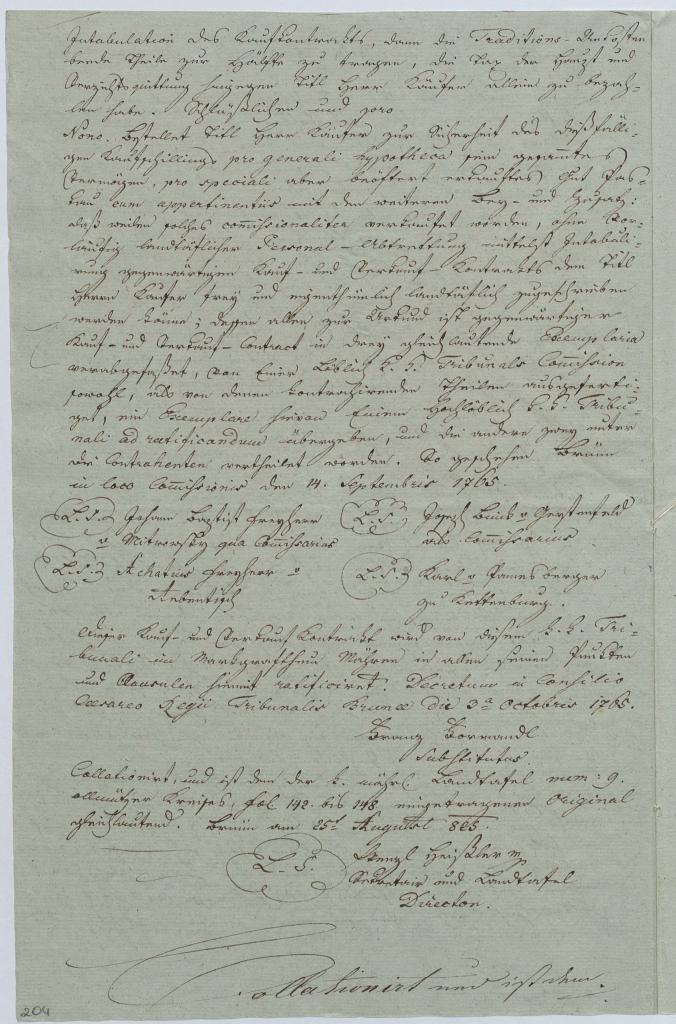 Intabulation des Kaufkontrakts, dann die Traditions-Unkosten
beede Theile zur Hälfte zu tragen, die Tax der Haupt und
Verzichtsquittung hingegen Titl Herr Käufer allein zu bezah-
len habe. Schlüßlichen und pro
Nono. bestellet Titl Herr Käufer zur Sicherheit des dießfälli-
gen Kaufschillings pro generali hypotheca sein gesamtes
Vermögen, pro speciali aber beöftert erkauftes Gut Pas-
kau cum appertinentiis mit dem weiteren Bey- und Zusatz:
daß weilen solches commissionaliter verkaufet worden, ohne Vor-
läufig landtäflicher Personal-Abtrettung mittelst Intabuli-
rung gegenwärtigen Kauf- und Verkauf-Kontrakts dem Titl
Herrn Käufer frey und eigenthümlich landtäflich zugeschrieben
werden könne; dessen allen zur Urkund ist gegenwärtiger
Kauf- und Verkauf-Contract in drey gleichlautende Exemplaria
verabgefasset, von Einer Löblich k. k. Tribunals Commission
sowohl, als von denen kontrahirenden Theilen ausgeferti-
get, ein Exemplare hievon Einem Hochlöblich k. k. Tribu-
nali ad ratificandum übergeben, und die andere zwey unter
die Contrahenten vertheilet worden. So geschehen Brünn
in loco Commissionis den 14. Septembris 1765.
L. S. Johann Baptist Freyherr
v Mitrowsky qua Commissarius
L. S. Joseph v
als Commissarius
L. S. Achatius Freyherr v
L. S. Karl v
zu Kettenburg.
Dieser Kauf- und Verkauf Kontrakt wird von diesem k. k. Tri-
bunali im Markgrafthum Mähren in allen seinen Punkten
und Clausulen hiemit ratificiret. Decretum in Consilio
Caesareo Regii Tribunalis Brunae die 3ª Octobris 1765.
Franz
Substitutus.
Collationirt, und ist dem der k. mährl. Landtafel num: 9.
ollmützer Kreises, fol 142. bis 148 eingetragenen Original
gleichlautend. Brünn am 25t August 825.
L. S.
Wenzl Heißler
Sekretair und Landtafel
Director.
Collationirt und ist dem
204